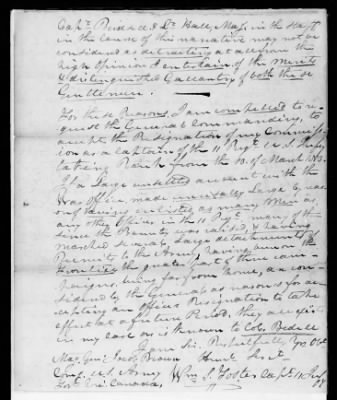 Capt. Bedel & Dr. Hall, may in the
in the course of this narative may not be
considered as detracting at all from the
high opinion I entertain of the Merits
& distinguished Gallantry of both these
Gentlemen.
For these Reasons, I am compelled to re-
quest the General Commanding, to
accept the resignation of my Commiss-
ion as a Captain of the 11 Regt. U.S. Infry
taking Rank from the 13. of March 1813.
If a Large unsettled account with the
War Office, made unusually Large by reas-
on of having enlisted as many Men as
any other Officer in the 11 Regt. many of them
since the Bounty was raised, & having
marched several Large detachments of
Recruits to the Army, having been on the
Frontiers the greater part of three cam-
paigns, being far from home, are con-
sidered by the General as reasons for ac-
cepting an Officers Resignation to take
effect at a future Period. they are exist
in my case as is known to Col. Bedel
I am Sir, Respectfully, Yr. Obt
Maj. Genl. Jacob Brown Humb. Servt.
Comg. U.S. Army Wm. S. Foster Capt. 11 Infy
Fort Erie Canada,